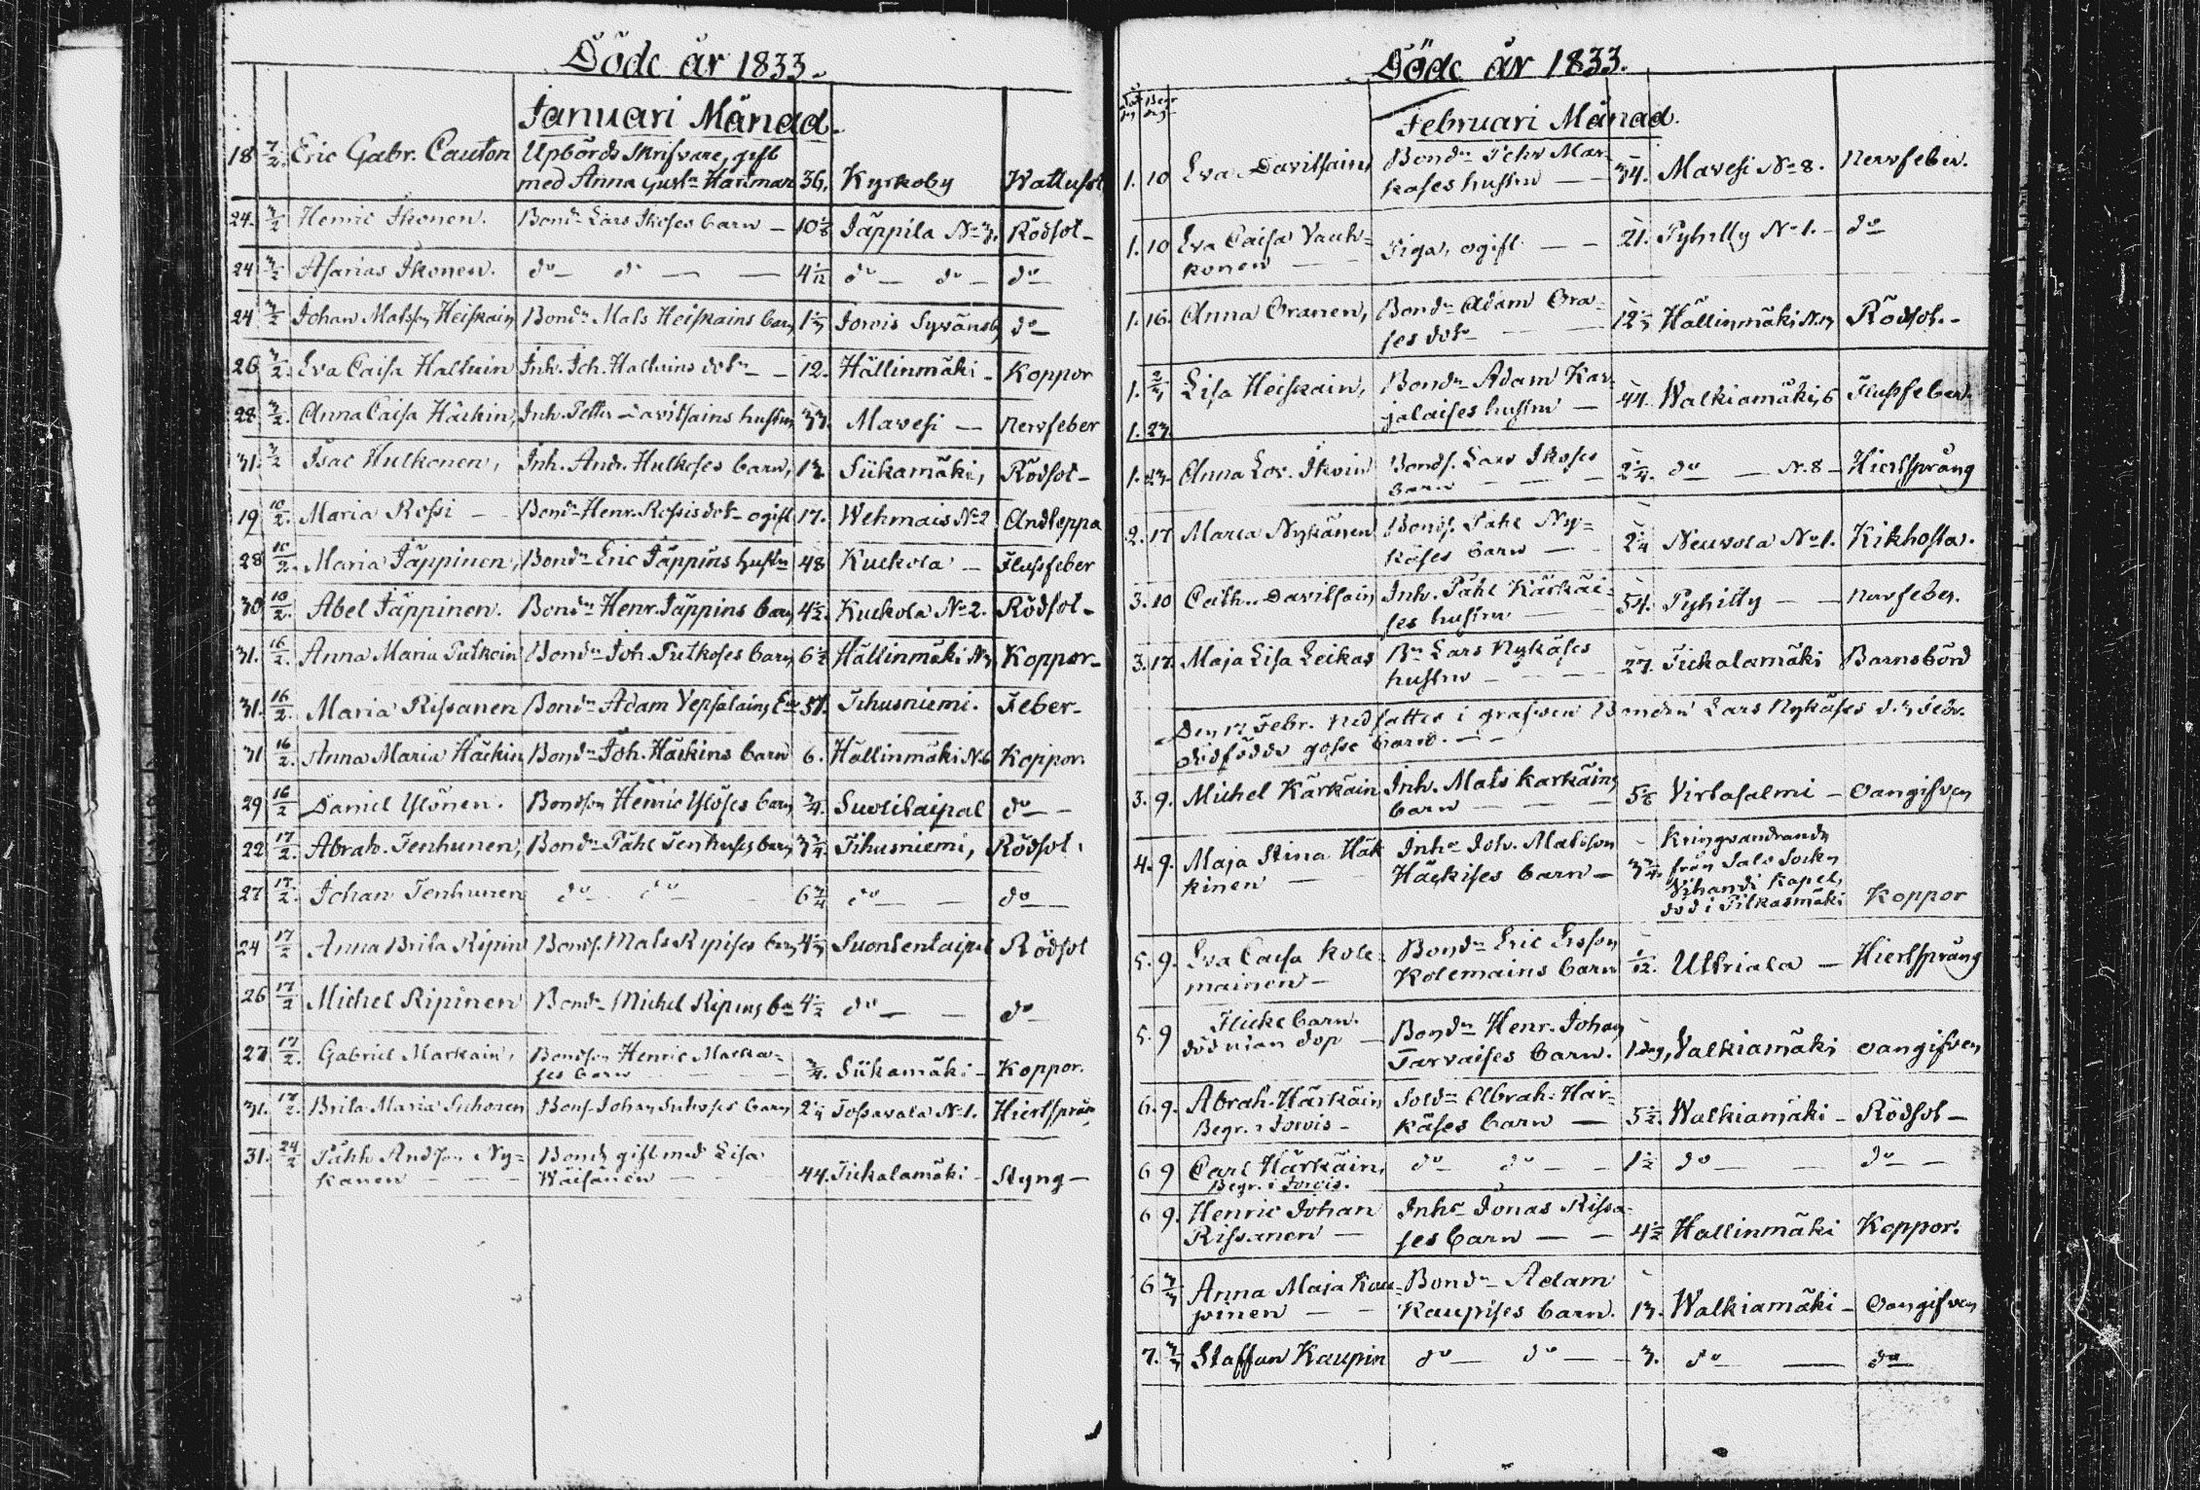 Döde år 1833.
Januari Månad.
18 7/2. Eric Gabr. Cauton Upbörds Skrifvare, gift
med Anna Gust. Hartman 36. Kyrkoby Wattusot
24. 3/2 Henric Ikonen. Bondn Lars Ikoses barn — 10 1/8 Jäppilä No 3. Rödsot —
24 3/2 Asarias Ikonen. do — do — — 4 1/12 do — do — do —
24 3/2 Johan Matsson Heiskain Bondn Mats Heiskains barn 1 1/3 Jorois Syvänsi do —
26 3/2. Eva Caisa Halttuin Inh. Joh. Halttuins dotr — 12. Hällinmäki — Koppor
28. 3/2. Anna Caisa Häckin, Inh. Petter Davitsains hustru 33. Mavesi — Nervfeber
31. 3/2 Isac Hulkonen, Inh. Andr. Hulkoses barn, 13. Siikamäki, Rödsot —
19 10/2. Maria Rossi — — Bondn Henr. Rossis dotr ogift 17. Wehmais No 2 Andteppa
28 10/2. Maria Jäppinen, Bondn Eric Jäppins hustru 48 Kuckola — Flussfeber
30 10/2. Abel Jäppinen. Bondn Henr. Jäppins barn 4 1/2. Kuckola No 2. Rödsot —
31. 16/2. Anna Maria Putkoin Bondn Joh. Putkoses barn 6 1/2 Hällinmäki No 3 Koppor —
31. 16/2. Maria Rissanen Bondn Adam Yepsälains Enka 57. Tihusniemi. Feber —
31 16/2. Anna Maria Häckin Bondn Joh. Häckins barn 6. Hällinmäki No 6 Koppor.
29 16/2 Daniel Ylönen. Bondson Henric Ylöses barn 3/4. Suontlaipal do —
22 17/2. Abrah. Tenhunen, Bondn Påhl Tenhuses barn 3 3/4 Tihusniemi, Rödsot.
27 17/2. Johan Tenhunen do — do — 6 3/4 do — — do —
24 17/2 Anna Brita Ripin Bonds. Mats Ripises barn 4 1/3 Suontenlaipal Rödsot
26 17/2 Michel Ripinen Bondn Michel Ripins bn 4 1/2 do — — do
27 17/2. Gabriel Markain, Bondson Henric Marka=
ses barn 3/4. Siikamäki — Koppor.
31. 17/2. Brita Maria Suhonen Bons. Johan Suhoses barn 2 1/4 Tossavala No 1. Hiertsprån
31. 24/2 Påhl Andsson Ny= Bonds gift med Lisa
kanen — — — Wäisänen — — 44. Tickalamäki — Styng —
Döde år 1833.
Februari Månad.
1. 10 Eva Davitsain, Bondn Pehr Mar=
kases hustru — — 34. Mavesi No 8. Nervfeber.
1. 10 Eva Caisa Vauh=
konen — — Piga, ogift — — 21. Pyhitty No 1. — do —
1. 16. Anna Oranen, Bondn Adam Ora=
ses dotr — — 12 1/3 Hällinmäki No 13 Rödsot. —
1. 2/3 Lisa Heiskain, Bondn Adam Kar=
jalaises hustru — 44. Walkiamäki, 6 Flussfeber.
1. 23.
1. 23. Anna Lov. Ikoin Bonds. Lars Ikoses
barn — — — 2 1/4. do — No 8 — Hiertsprång
2. 17 Maria Nykänen Bonds. Påhl Ny=
käses barn — — 2 1/4 Neuvola No 1. Kikhosta.
3. 10 Cath. Davitsain Inh. Påhl Kärkäi=
ses hustru — — 54. Pyhitty — — Nervfeber.
3. 17. Maja Lisa Leikas Bn Lars Nykäses
hustru — — — 27. Tickalamäki Barnsbörd
Den 17 Febr. nedsattes i grafven Bonden Lars Nykäses d. 3 Febr.
dödfödde gosse barn. — —
3. 9. Michel Kärkäin Inh. Mats Karkäins
barn — — — 5 1/6 Virtasalmi — Oangifven
4. 9. Maja Stina Häk
kinen — — Inhs Joh. Matsson
Häckises barn — 3 3/4. Kringvandrande
från Salo Sockn
Vihandi Kapel,
död i Pilkasmäki Koppor
5. 9. Eva Caisa Kole=
mainen — Bondn Eric Ersson
Kolemains barn 1/12. Uttriala — Hiertsprång
5. 9 Flicke barn.
död utan dop — Bondn Henr. Johan
Tarvaises barn. 1 dag, Valkiamäki Oangifven
6. 9. Abrah. Härkäin
Begr. i Jorois — Soldn Abrah. Här=
käses barn — 5 1/2. Walkiamäki — Rödsot —
6 9 Carl Härkäin,
Begr. i Jorois. do — do — — 1 1/2 do — — do —
6 9. Henric Johan
Rissanen — Inhs Jonas Rissa=
ses barn — — 4 1/2 Hallinmäki Koppor.
6 3/3 Anna Maja Kau=
pinen — — Bondn Adam
Kaupises barn. 13. Walkiamäki — Oangifven
7. 3/3 Staffan Kaupin do — do — — 3. do — — do